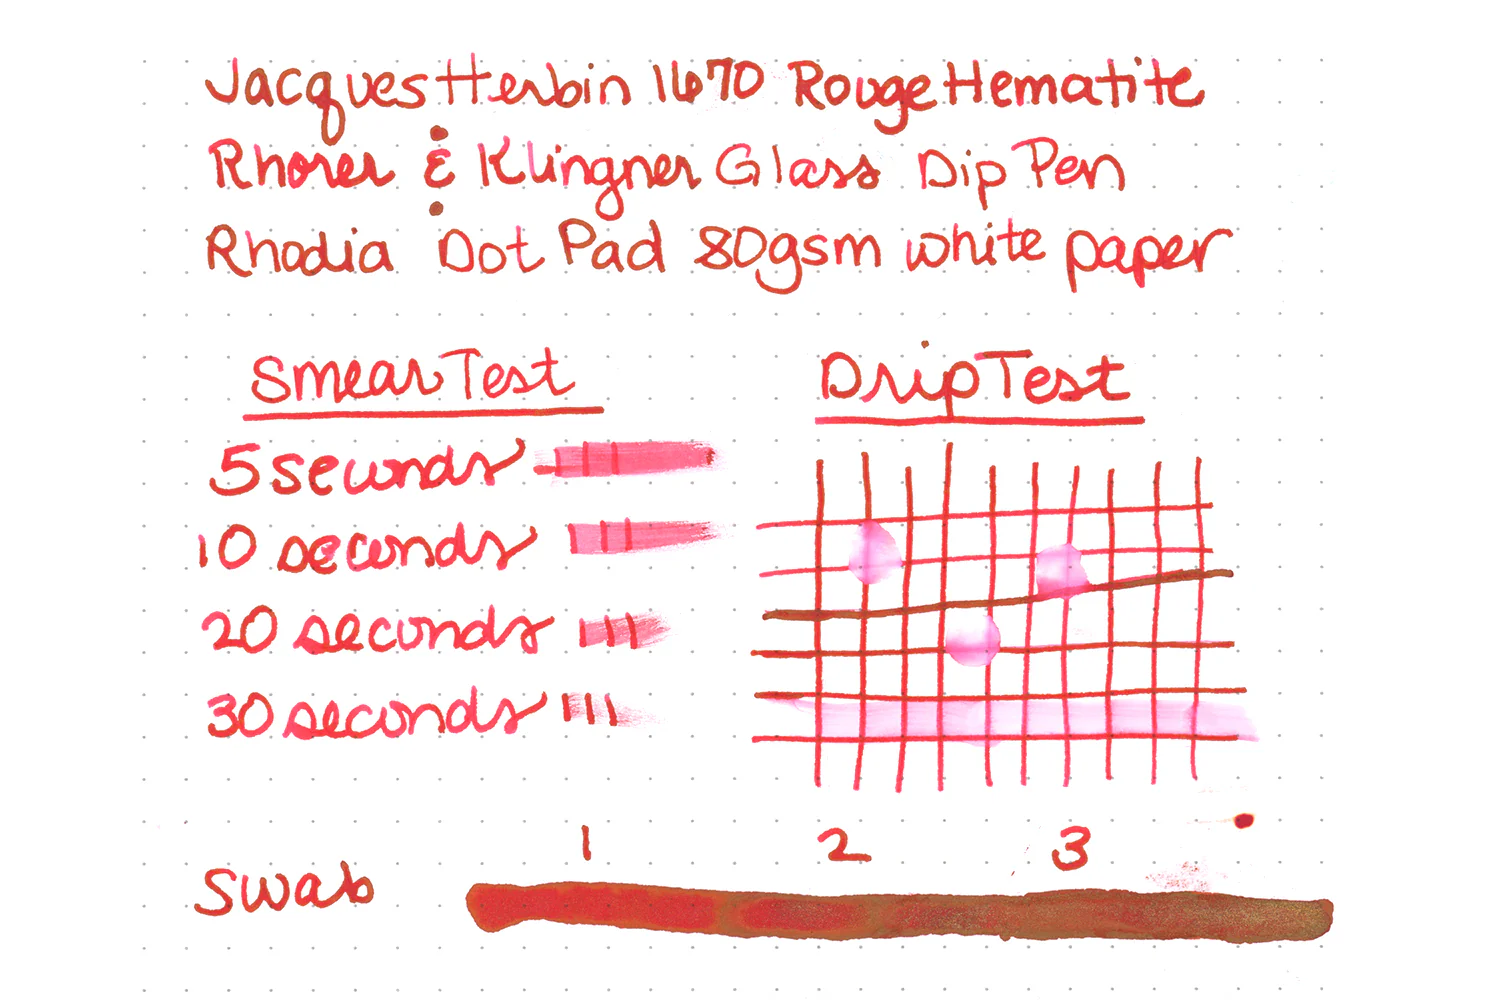 Jacques Herbin 1670 Rouge Hematite
Rhorer & Klingner Glass Dip Pen
Rhodia Dot Pad 80gsm white paper
Smear Test
5 seconds
10 seconds
20 seconds
30 seconds
Drip Test
1 2 3
Swab